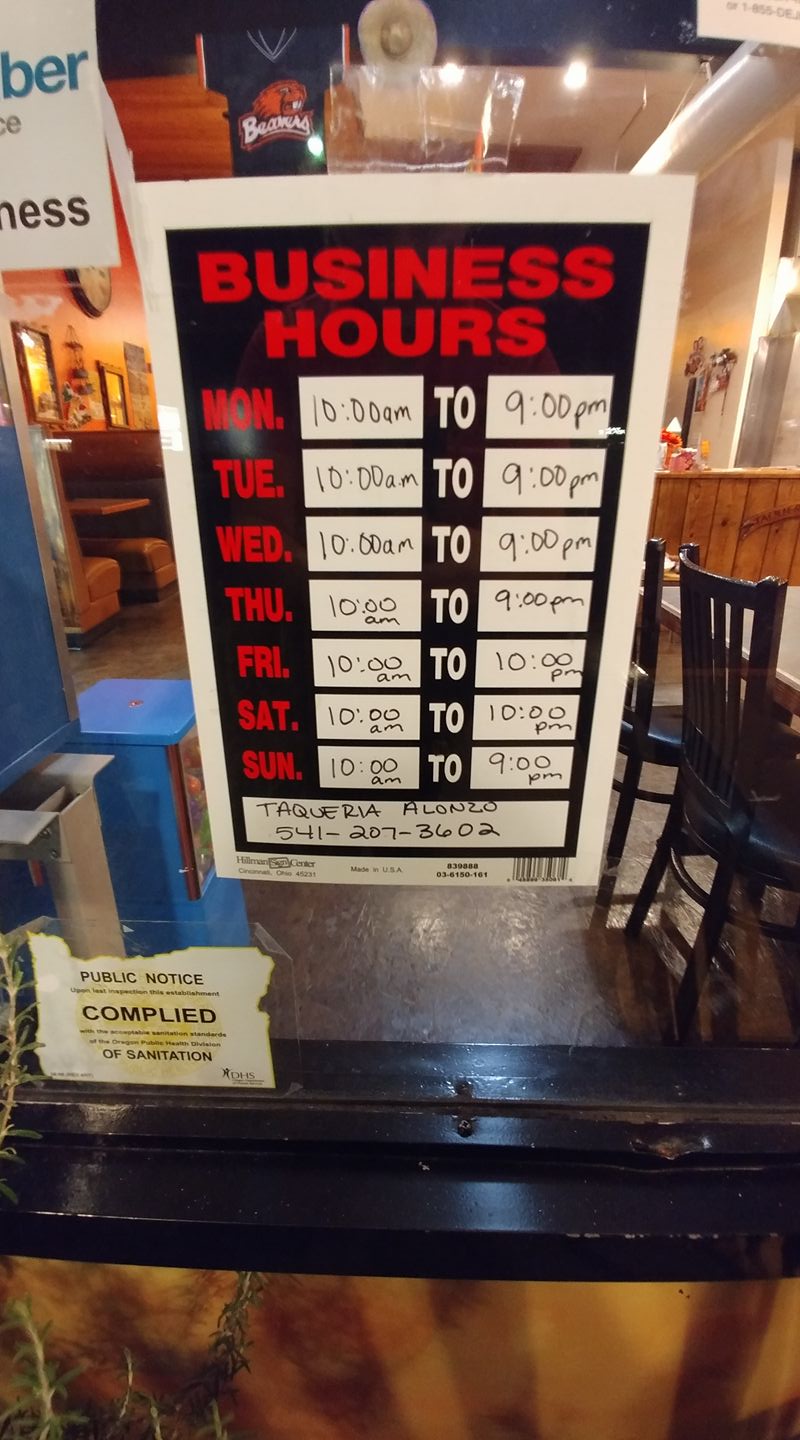 ber
ness
or 1-855-DEJ
Beavers
BUSINESS
HOURS
MON. 10:00am TO 9:00pm
TUE. 10:00am TO 9:00pm
WED. 10:00am TO 9:00pm
THU. 10:00 am TO 9:00pm
FRI. 10:00 am TO 10:00 pm
SAT. 10:00 am TO 10:00 pm
SUN. 10:00 am TO 9:00 pm
TAQUERIA ALONZO
541-207-3602
Hillman Sign Center
Cincinnati, Ohio 45231
Made in U.S.A.
839888
03-6150-161
PUBLIC NOTICE
Upon last inspection this establishment
COMPLIED
with the acceptable sanitation standards
of the Oregon Public Health Division
OF SANITATION
DHS